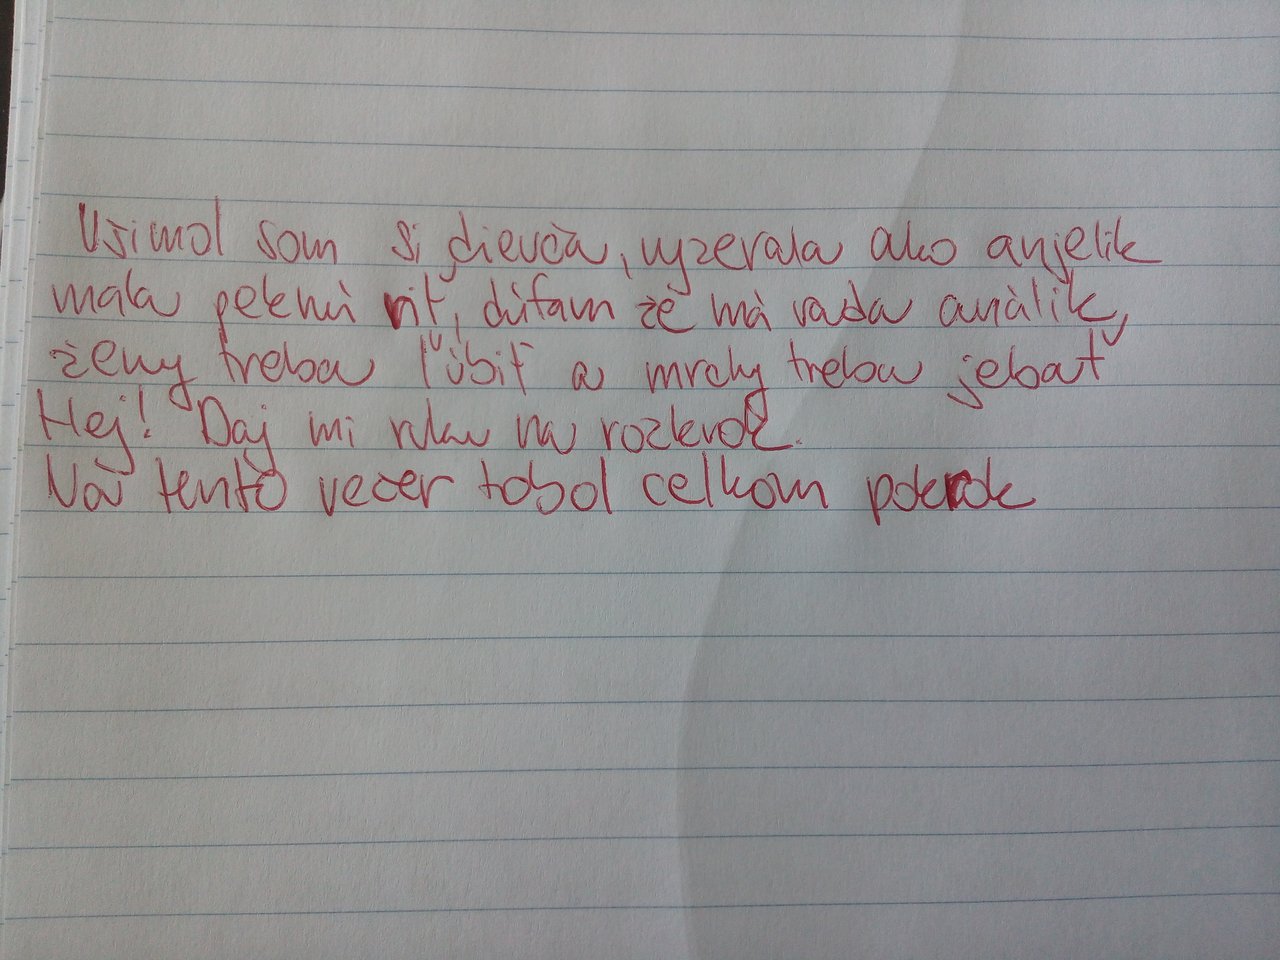 Všimol som si dievča, vyzerala ako anjelik
mala peknú riť, dúfam že má rada análik,
ženy treba ľúbiť a mrchy treba jebať
Hej! Daj mi ruku na rozkrok.
Na tento večer tobol celkom pokrok